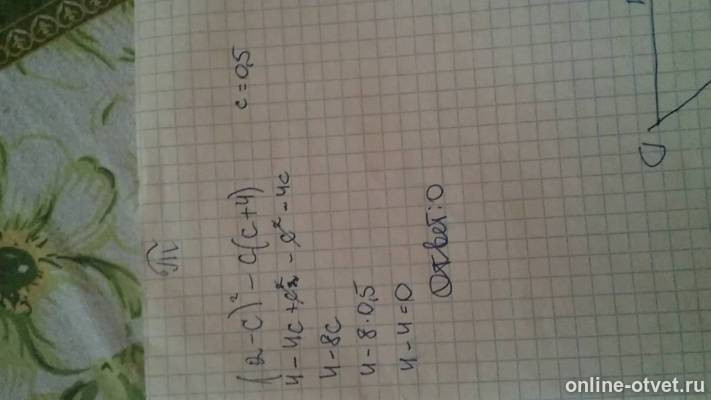 (2-c)² - c(c+4)    c=0,5
4-4c+c²-c²-4c
4-8c
4-8·0,5
4-4=0
Ответ: 0
online-otvet.ru